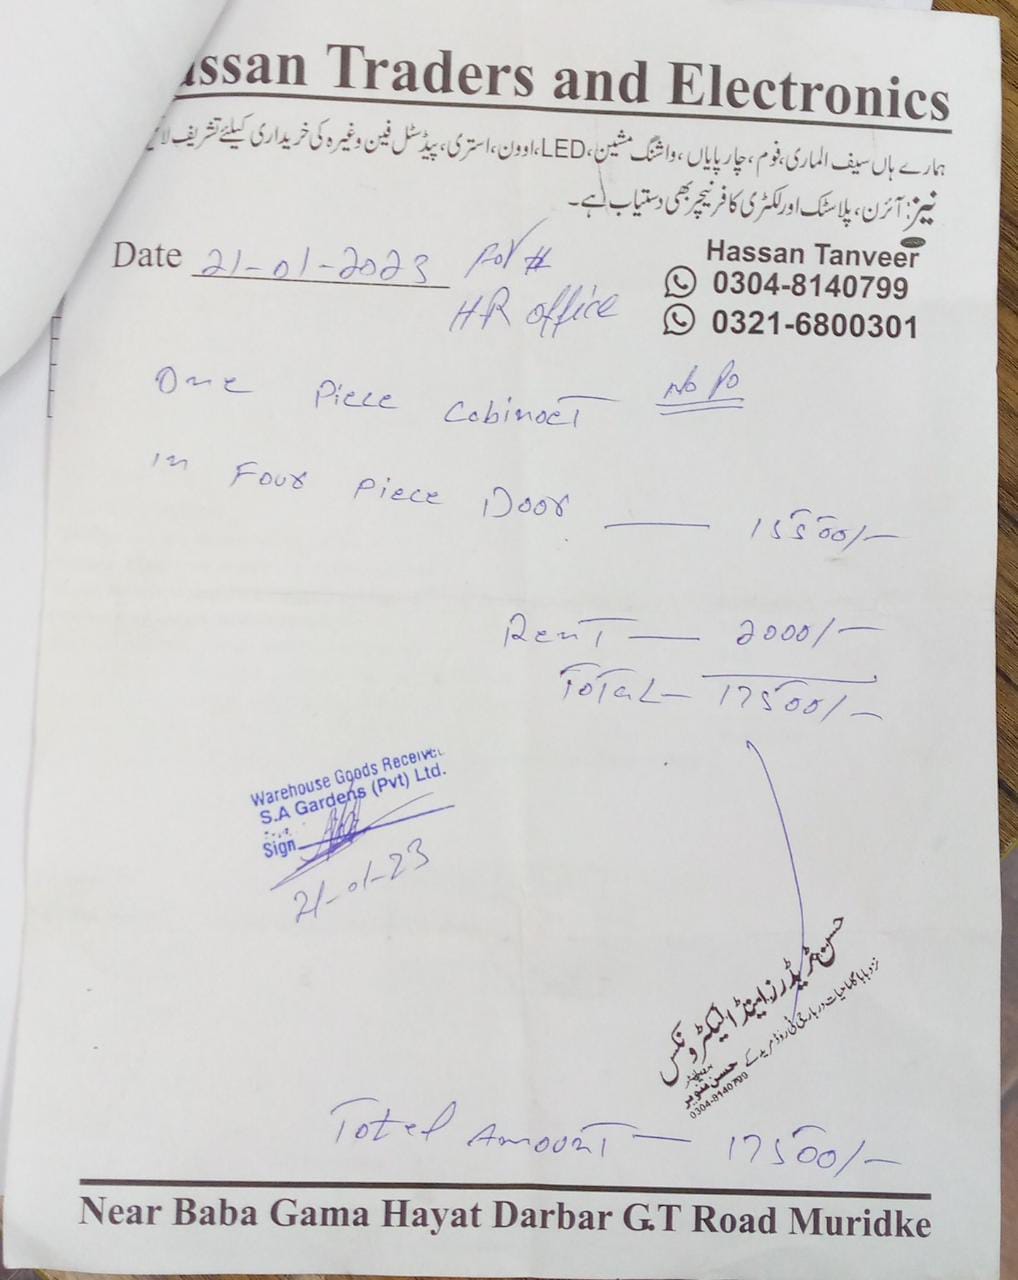 assan Traders and Electronics
ہمارے ہاں سیف الماری، فوم، چارپایاں، واشنگ مشین، LED، اوون، استری، پیڈسٹل فین وغیرہ کی خریداری کیلئے تشریف
نیز: آئرن، پلاسٹک اور لکڑی کا فرنیچر بھی دستیاب ہے۔
Date 21-01-2023 For #
HR office
Hassan Tanveer
0304-8140799
0321-6800301
One Piece Cabinet No Po
in Four Piece Door — 15500/-
Rent — 2000/-
Total - 17500/-
Warehouse Goods Receive
S.A Gardens (Pvt) Ltd.
Sign
21-01-23
حسن ٹریڈرز اینڈ الیکٹرونکس
نزد بابا گاما حیات دربار جی ٹی روڈ مریدکے
حسن تنویر
0304-8140799
Total Amount — 17500/-
Near Baba Gama Hayat Darbar G.T Road Muridke